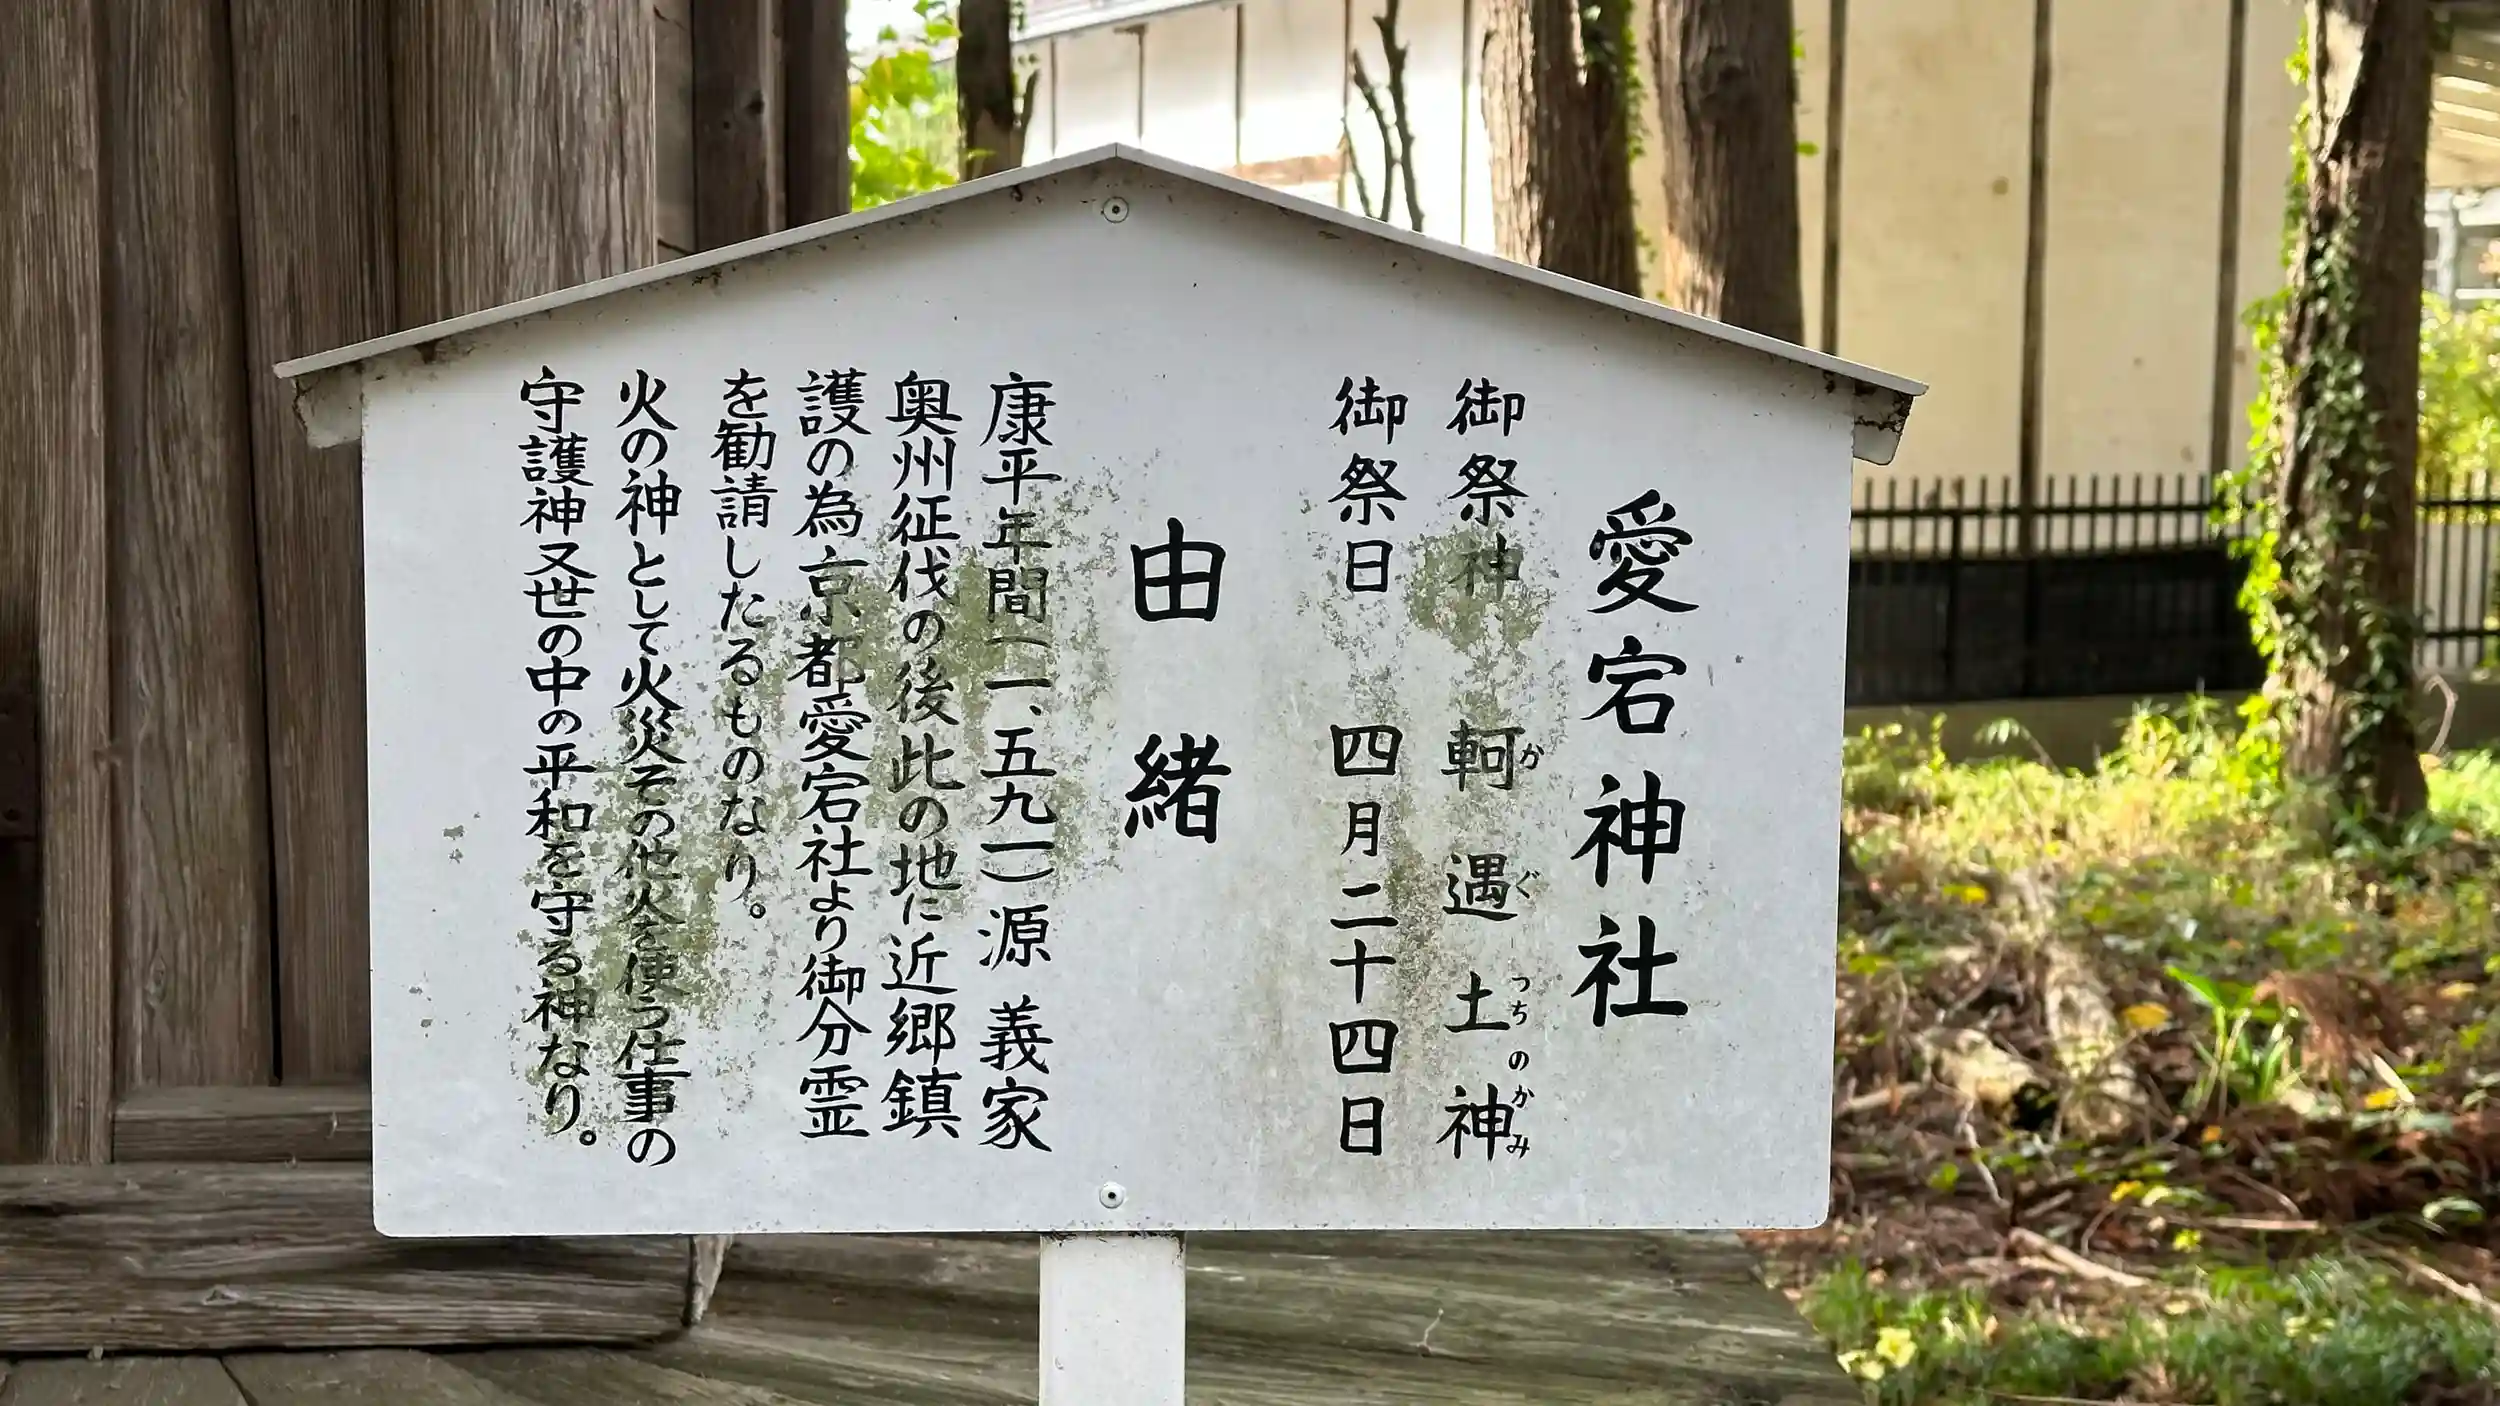 愛宕神社
御祭神 軻遇土神
かぐつちのかみ
御祭日 四月二十四日
由緒
康平年間(一、五九一)源 義家
奥州征伐の後此の地に近郷鎮
護の為京都愛宕社より御分霊
を勧請したるものなり。
火の神として火災その他火を使う仕事の
守護神又世の中の平和を守る神なり。